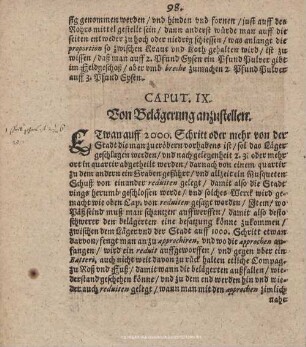 98.
ssg genommen werden / und hinden und fornen / just auff des
Rohrs mittel gestellt sein / dann anderst würde man auff die
seiten entweder zu hoch oder niedrig schiessen / was anlangt die
proportion so zwischen Kraut und Loth gehalten wird / ist zu
wissen / daß man auff 2. Pfund Eysen ein Pfund Pulver gibt
im Feldgeschoß / aber umb breche zumachen 2. Pfund Pulver
auff 3. Pfund Eysen.
CAPUT. IX.
Von Belägerung anzustellen.
ETwan auff 2000. Schritt oder mehr von der
Stadt die man zu eröbern vorhabens ist / sol das Läger
geschlagen werden / und nach gelegenheit 2. 3. oder mehr
ort in quartir abgetheilt werden / darnach von einem quartir zu
dem andern ein Graben geführt / und allzeit ein Musqueten
Schuß von einander reduiten gelegt / damit also die Stadt
rings herumb geschlossen werde / und solches Werck wird ge-
macht wie oben Cap. von reduiten gesetzt werden / Item / wo
Päß sein muß man schantzen auffwerffen / damit also beso-
schwerer den belägerten eine besatzung könne zukommen /
zwischen dem Läger und der Stadt auff 1000. Schritt etwan
davon / fengt man an zu approchiren, und wo die approchen an-
fangen / wird ein reduit auffgeworffen / und gegen über ein
Batteri, auch nicht weit davon zu rück halten etliche Compag.
zu Roß und Fuß / damit wann die belägerten außfallen / wie-
derstand geschehen könne / und zu dem end werden hin und wie-
der auch reduiten gelegt / wann man mit den approchen zimlich
nahe